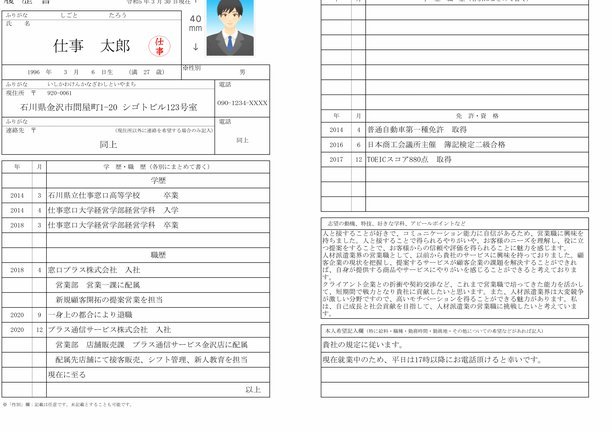 履歴書
令和5年3月30日現在
ふりがな しごと たろう
氏名
仕事 太郎
仕事
40
mm
↓
※性別
1996 年 3 月 6 日生 (満 27 歳) 男
ふりがな いしかわけんかなざわしといやまち
現住所 〒 920-0061
石川県金沢市問屋町1-20 シゴトビル123号室
電話
090-1234-XXXX
ふりがな
連絡先 〒 (現住所以外に連絡を希望する場合のみ記入)
同上
電話
同上
年 月 学 歴・職 歴 (各別にまとめて書く)
学歴
2014 3 石川県立仕事窓口高等学校 卒業
2014 4 仕事窓口大学経営学部経営学科 入学
2018 3 仕事窓口大学経営学部経営学科 卒業
職歴
2018 4 窓口プラス株式会社 入社
営業部 営業一課に配属
新規顧客開拓の提案営業を担当
2020 9 一身上の都合により退職
2020 12 プラス通信サービス株式会社 入社
営業部 店舗販売課 プラス通信サービス金沢店に配属
配属先店舗にて接客販売、シフト管理、新人教育を担当
現在に至る
以上
※「性別」欄：記載は任意です。未記載とすることも可能です。
年 月 免 許・資 格
2014 4 普通自動車第一種免許 取得
2016 6 日本商工会議所主催 簿記検定二級合格
2017 12 TOEICスコア880点 取得
志望の動機、特技、好きな学科、アピールポイントなど
人と接することが好きで、コミュニケーション能力に自信があるため、営業職に興味を
持ちました。人と接することで得られるやりがいや、お客様のニーズを理解し、役に立
つ提案をすることで、お客様からの信頼や評価を得られることに魅力を感じます。
人材派遣業界の営業職として、以前から貴社のサービスに興味を持っておりました。顧
客企業の現状を把握し、提案するサービスが顧客企業の課題を解決することができれ
ば、自身が提供する商品やサービスにやりがいを感じることができると考えておりま
す。
クライアント企業との折衝や契約交渉など、これまで営業職で培ってきた能力を活かし
て、短期間で戦力となり貴社に貢献したいと思います。また、人材派遣業界は大変競争
が激しい分野ですので、高いモチベーションを得ることができる魅力があります。私
は、自己成長と社会貢献を目指して、人材派遣業の営業職に挑戦したいと考えていま
す。
本人希望記入欄 (特に給料・職種・勤務時間・勤務地・その他についての希望などがあれば記入)
貴社の規定に従います。
現在就業中のため、平日は17時以降にお電話頂けると幸いです。